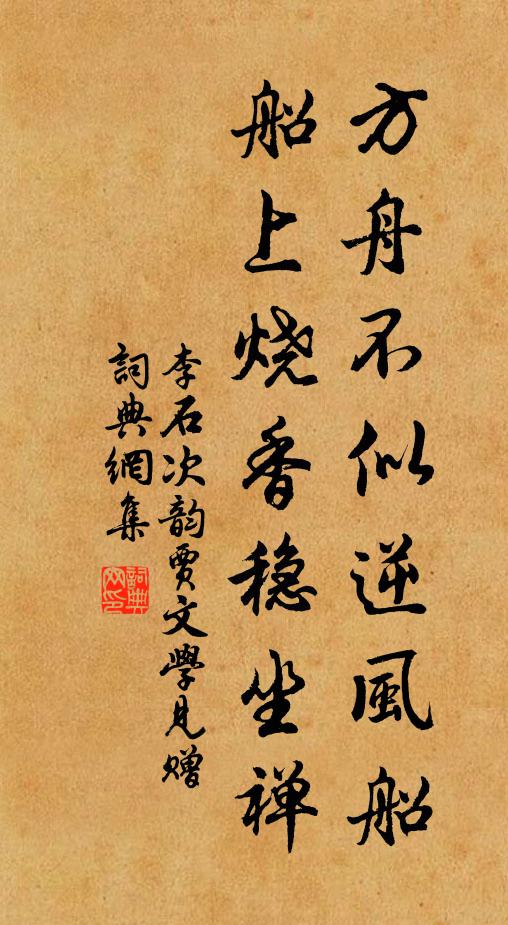 方舟不似逆風船
船上烧香稳坐禅
李石次韵賈文學見赠
詞典網集
詞典
网印